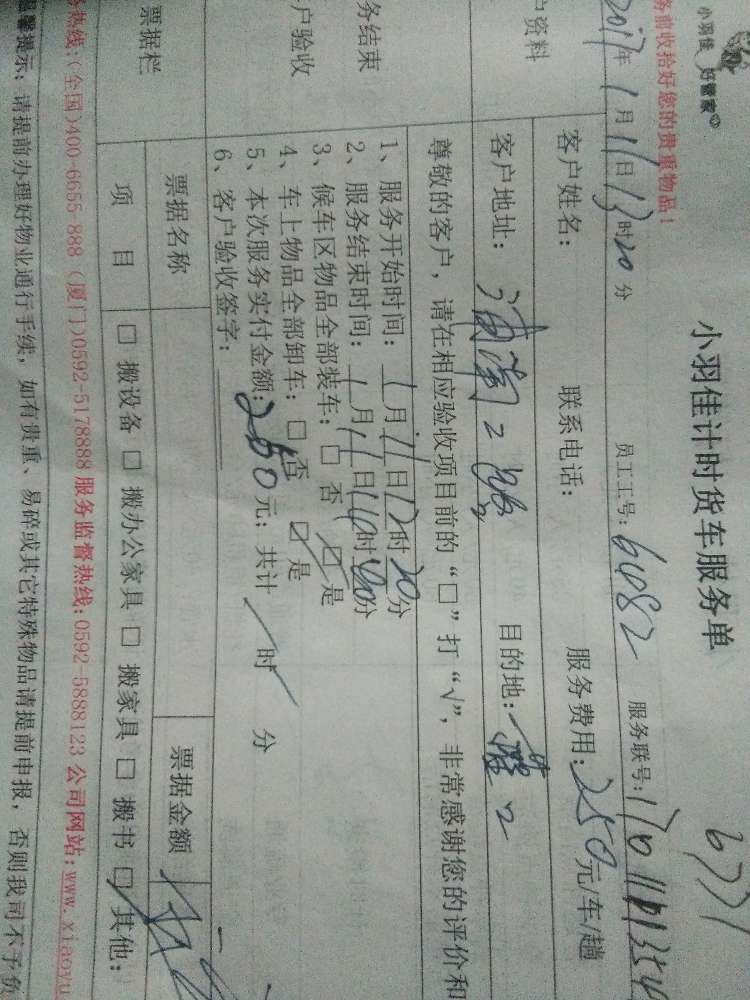 小羽佳 好管家
务前收拾好您的贵重物品!
小羽佳计时货车服务单
6771
2017年1月11日13时20分 员工工号:6082 服务联号:
户资料
客户姓名: 联系电话: 服务费用:250元/车/趟
客户地址: 目的地:
尊敬的客户,请在相应验收项目前的“□”打“√”,非常感谢您的评价和
务结束
户验收
1、服务开始时间:1月11日12时20分
2、服务结束时间:1月11日14时40分
3、候车区物品全部装车:□ 否 ☑ 是
4、车上物品全部卸车:□ 否 ☑ 是
5、本次服务实付金额:250元;共计 时 分
6、客户验收签字:
票据栏
票据名称 票据金额
项 目 □ 搬设备 □ 搬办公家具 □ 搬家具 □ 搬书 ☑ 其他:
务热线:(全国)400-6655 888 (厦门)0592-5178888 服务监督热线:0592-5888123 公司网站:www.xiaoyu
温馨提示:请提前办理好物业通行手续,如有贵重、易碎或其它特殊物品请提前申报,否则我司不予价